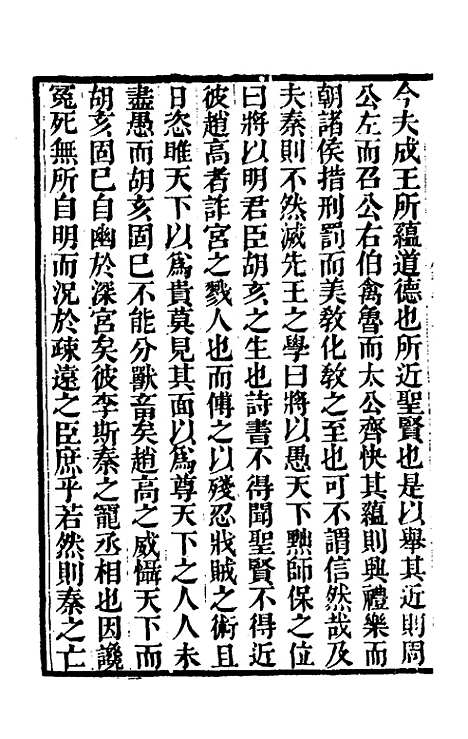 今夫成王所蘊道德也所近聖賢也是以舉其近則周
公左而召公右伯禽魯而太公齊快其蘊則興禮樂而
朝諸侯措刑罰而美敎化敎之至也可不謂信然哉及
夫秦則不然滅先王之學曰將以愚天下黜師保之位
曰將以明君臣胡亥之生也詩書不得聞聖賢不得近
彼趙高者詐宮之戮人也而傅之以殘忍戕賊之術且
日恣睢天下以爲貴莫見其面以爲尊天下之人人未
盡愚而胡亥固已不能分獸畜矣趙高之威懾天下而
胡亥固已自幽於深宮矣彼李斯秦之寵丞相也因讒
冤死無所自明而況於疎遠之臣庶乎若然則秦之亡